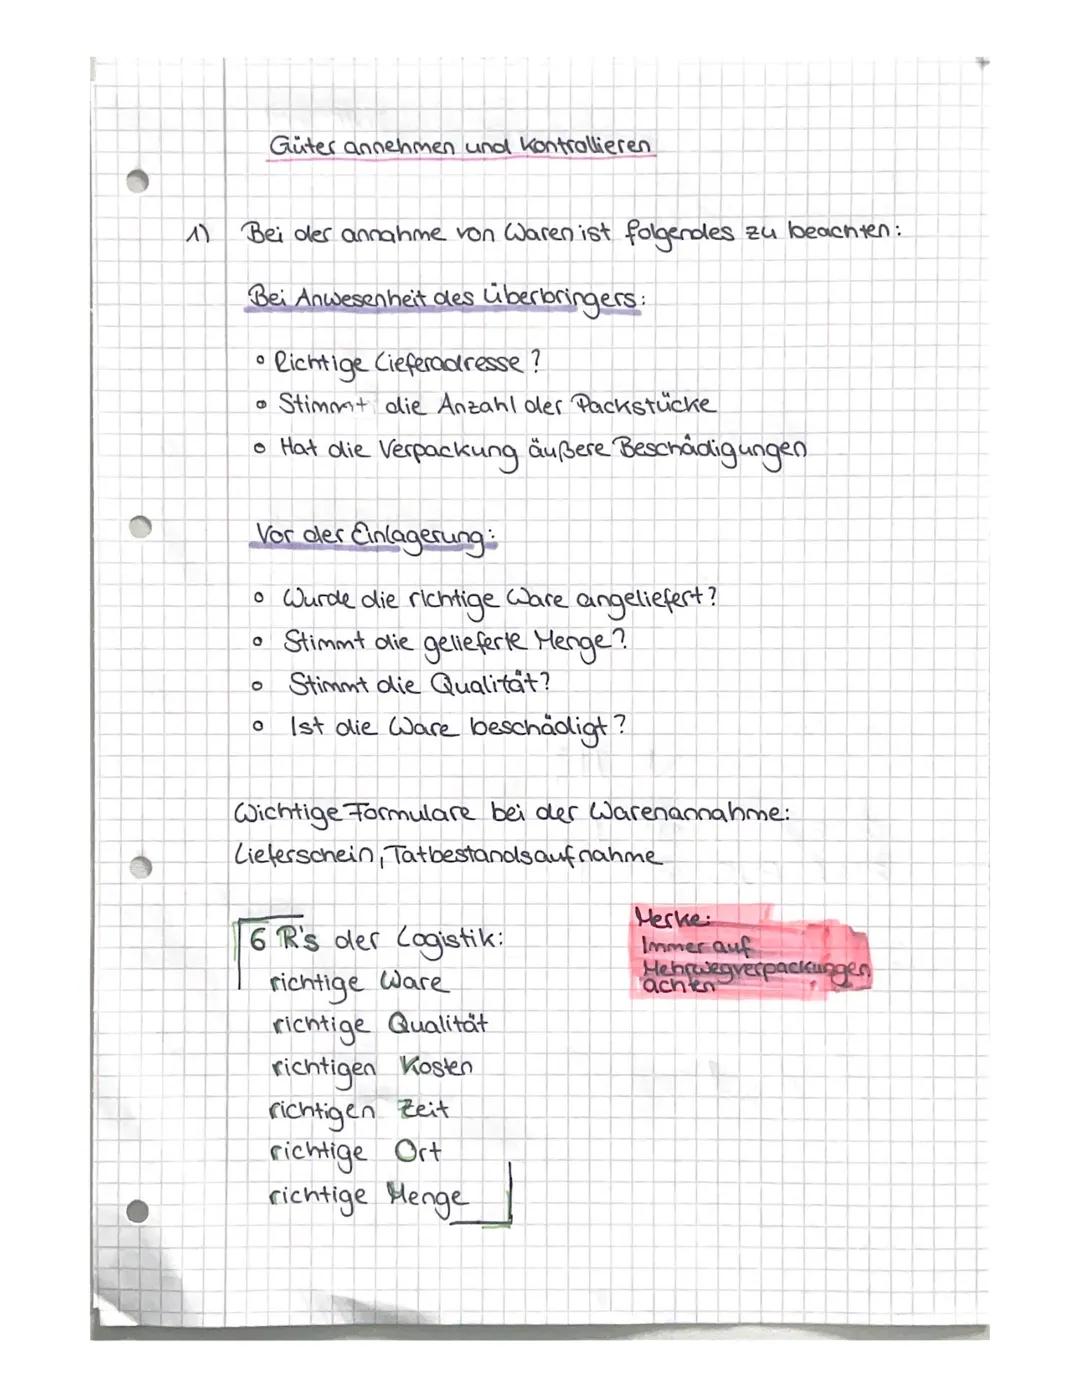 Güter annehmen und kontrollieren
1) Bei der annahme von Waren ist folgendes zu beachten:
Bei Anwesenheit des überbringers:
• Richtige Lieferadresse?
• Stimmt die Anzahl der Packstücke
• Hat die Verpackung äußere Beschädigungen
Vor der Einlagerung:
• Wurde die richtige Ware angeliefert?
• Stimmt die gelieferte Menge?
• Stimmt die Qualität?
• Ist die Ware beschädigt?
Wichtige Formulare bei der Warenannahme:
Lieferschein, Tatbestandsaufnahme
6 R's der Logistik:
richtige Ware
richtige Qualität
richtigen Kosten
richtigen Zeit
richtige Ort
richtige Menge
Merke:
Immer auf
Mehrwegverpackungen
achten